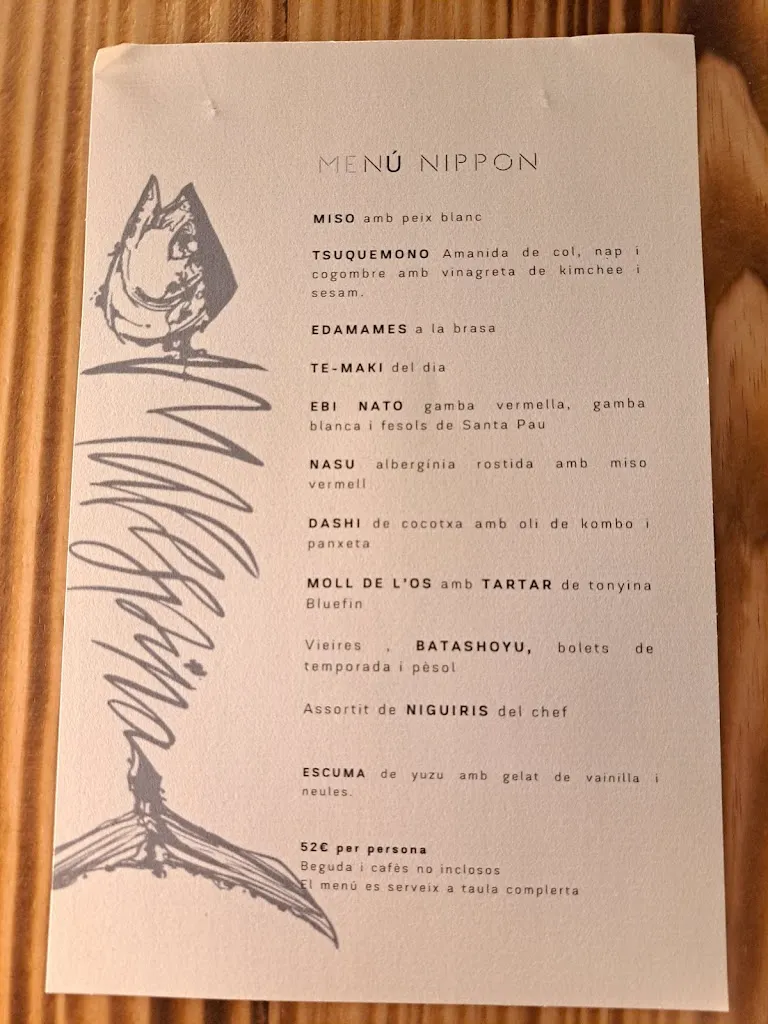 MENÚ NIPPON
MISO amb peix blanc
TSUQUEMONO Amanida de col, nap i
cogombre amb vinagreta de kimchee i
sesam.
EDAMAMES a la brasa
TE-MAKI del dia
EBI NATO gamba vermella, gamba
blanca i fesols de Santa Pau
NASU albergínia rostida amb miso
vermell
DASHI de cocotxa amb oli de kombo i
panxeta
MOLL DE L'OS amb TARTAR de tonyina
Bluefin
Vieires , BATASHOYU, bolets de
temporada i pèsol
Assortit de NIGUIRIS del chef
ESCUMA de yuzu amb gelat de vainilla i
neules.
52€ per persona
Beguda i cafès no inclosos
El menú es serveix a taula complerta